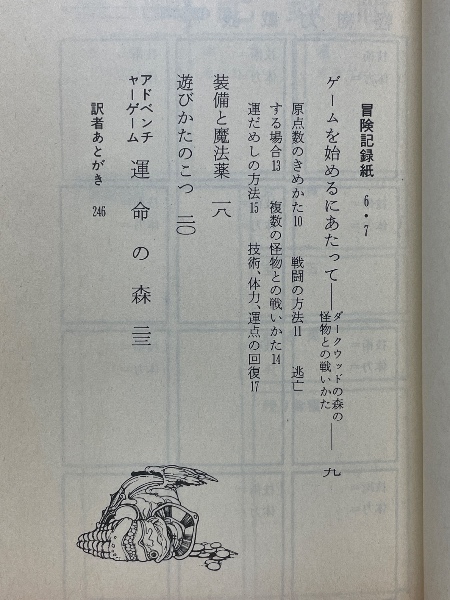 冒険記録紙 6・7
ゲームを始めるにあたって——ダークウッドの森の怪物との戦いかた——九
原点数のきめかた10 戦闘の方法11 逃亡
する場合13 複数の怪物との戦いかた14
運だめしの方法15 技術、体力、運点の回復17
装備と魔法薬 一八
遊びかたのこつ 二〇
アドベンチャーゲーム 運命の森 二三
訳者あとがき 246